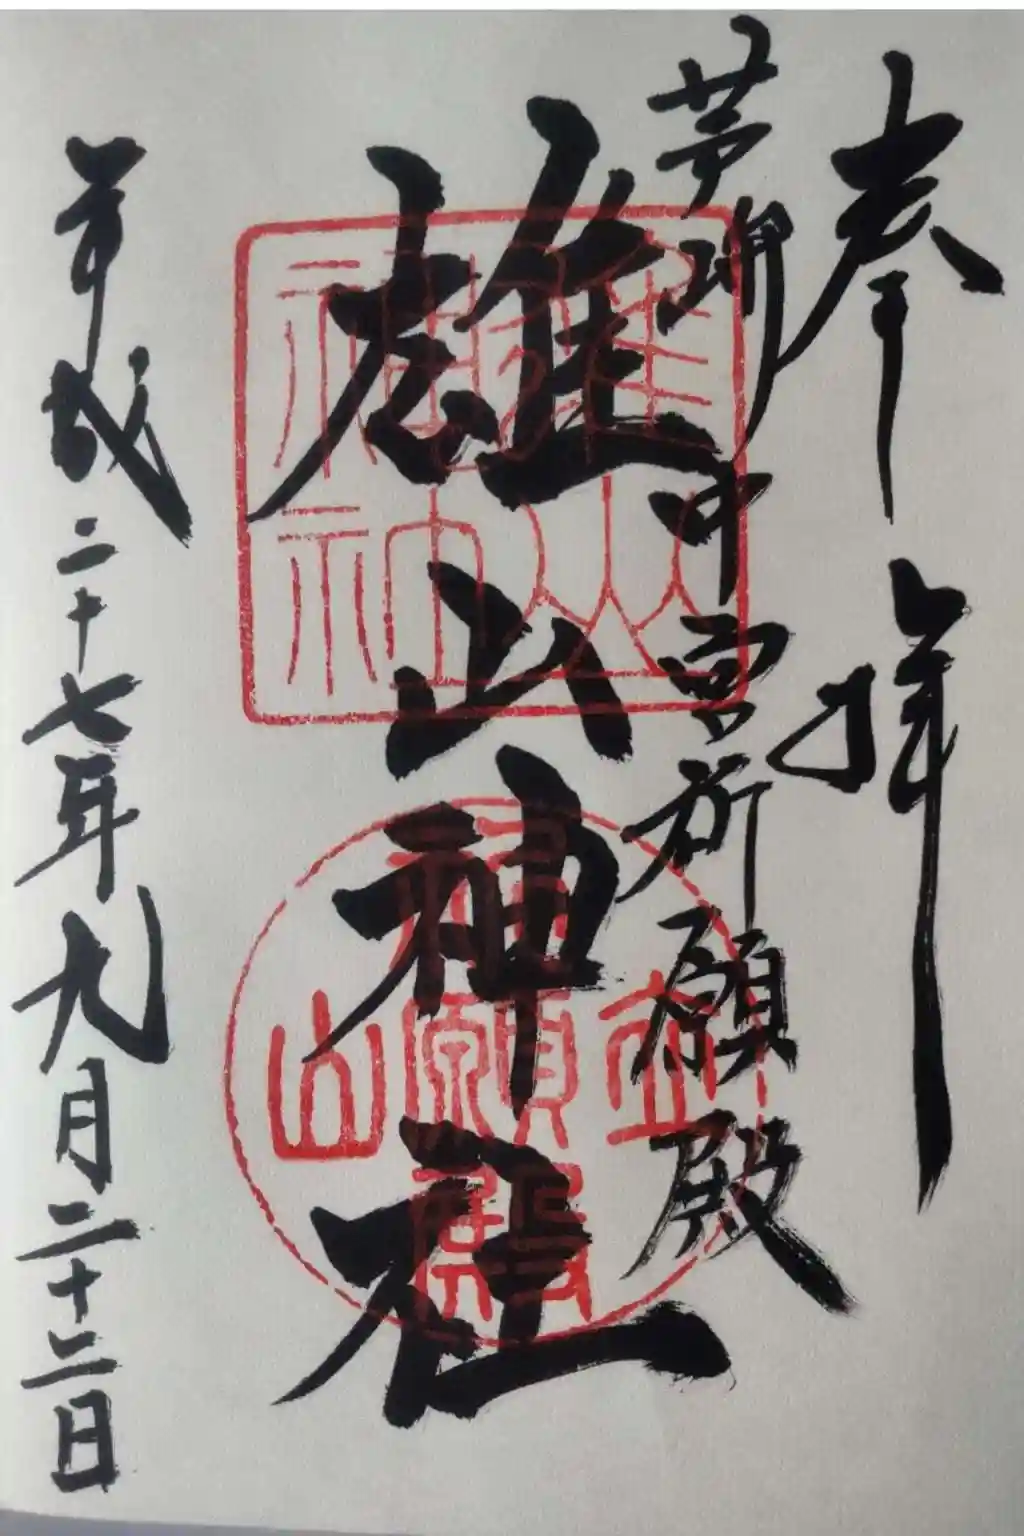 奉拝
芦峅中宮祈願殿
雄山神社
平成二十七年九月二十二日
雄山神社
立山
祈願殿